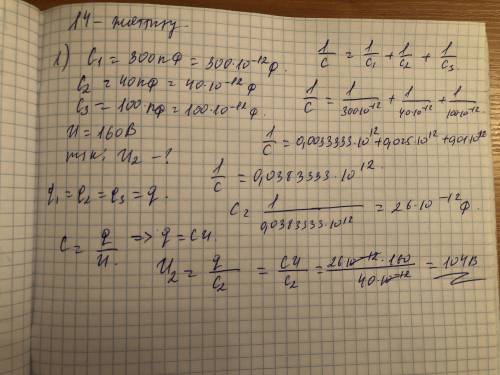 14 - жаттығу.
1) C₁ = 300 пФ = 300·10⁻¹² Ф.
C₂ = 40 пФ = 40·10⁻¹² Ф
C₃ = 100 пФ = 100·10⁻¹² Ф.
U = 160 В
т/к: U₂ - ?
q₁ = q₂ = q₃ = q.
C = q/U. => q = CU.
1/C = 1/C₁ + 1/C₂ + 1/C₃
1/C = 1/300·10⁻¹² + 1/40·10⁻¹² + 1/100·10⁻¹²
1/C = 0,0033333·10¹² + 0,025·10¹² + 0,01·10¹²
1/C = 0,0383333·10¹².
C = 1/0,0383333·10¹² = 26·10⁻¹² Ф.
U₂ = q/C₂ = CU/C₂ = 26·10⁻¹²·160/40·10⁻¹² = 104 В